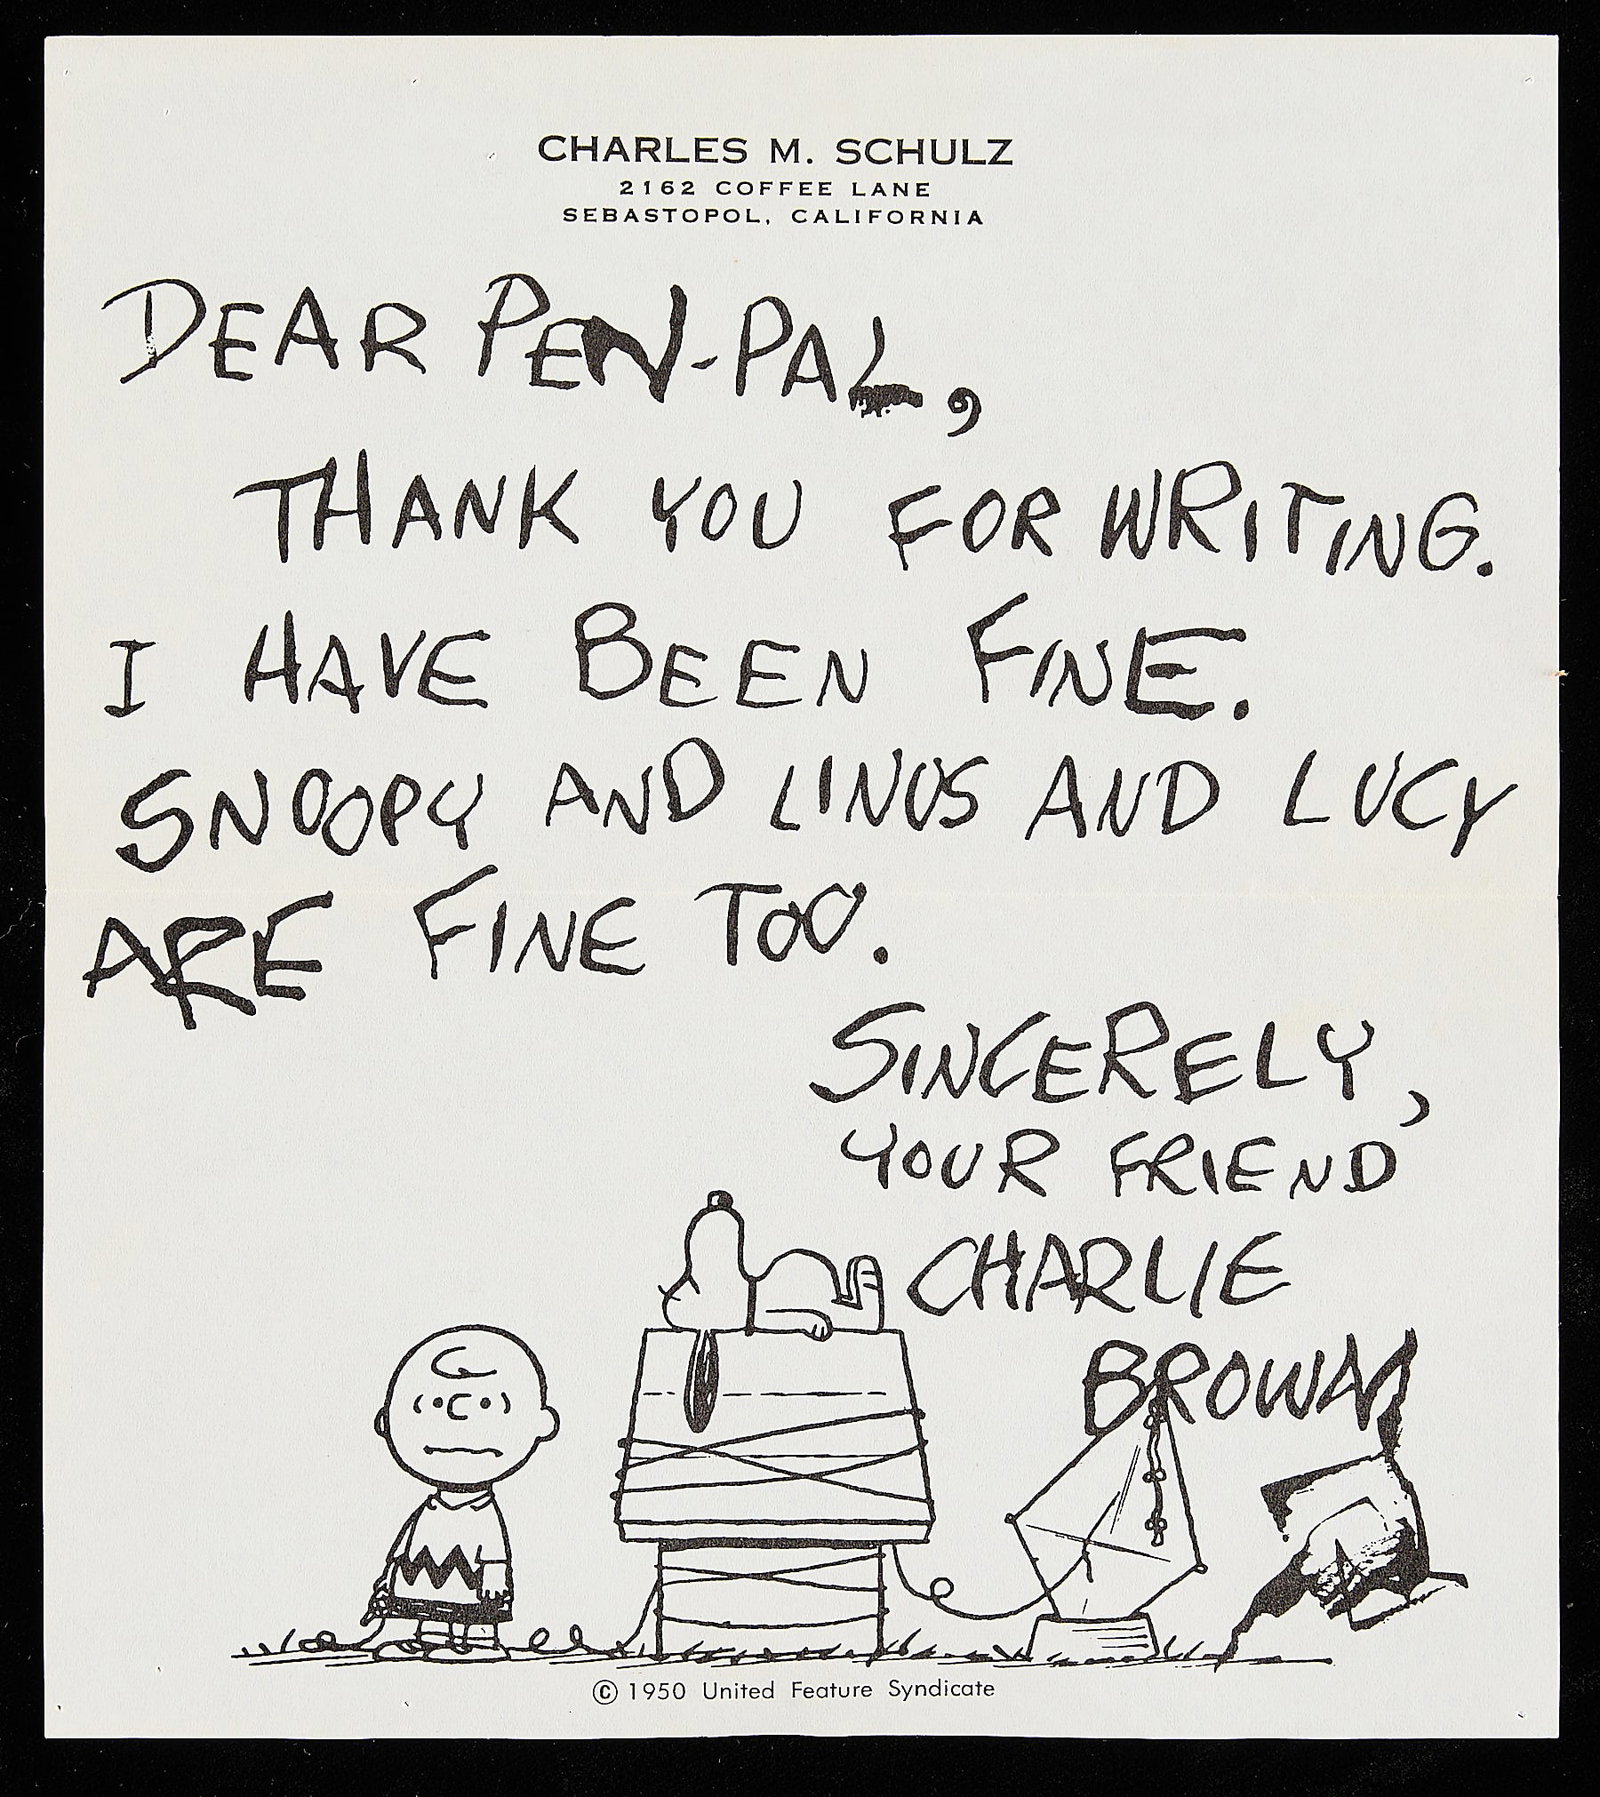 CHARLES M. SCHULZ
2162 COFFEE LANE
SEBASTOPOL, CALIFORNIA
DEAR PEN-PAL,
THANK YOU FOR WRITING.
I HAVE BEEN FINE.
SNOOPY AND LINUS AND LUCY
ARE FINE TOO.
SINCERELY,
YOUR FRIEND
CHARLIE
BROWN
© 1950 United Feature Syndicate